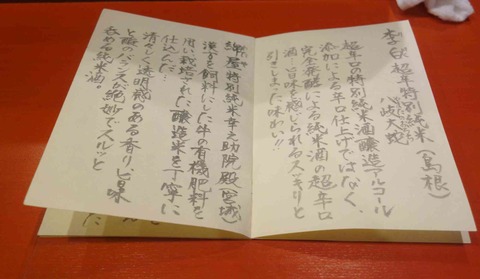 李白 超辛 特別純米(島根)
八岐大蛇
超辛口の特別純米酒 醸造アルコール
添加による辛口仕上げではなく、
完全発酵による純米酒の超辛口
酒。旨味を感じられるスッキリと
引きしまった味わい!!
特別純米 幸之助院殿(宮城)
漢方を飼料にした牛の有機肥料を
用い栽培された醸造米を丁寧に
仕込んだ
清々しく透明感のある香り、旨味
と酸のバランスが絶妙でスルッと
呑める純米酒